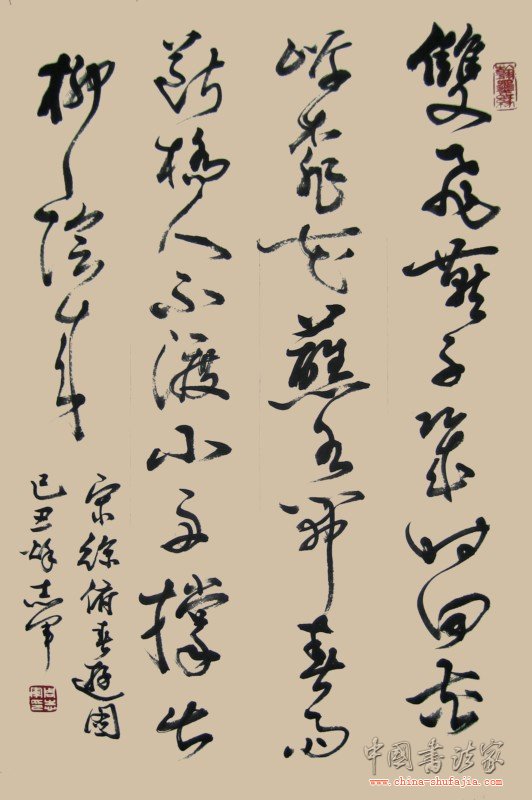 雙飛燕子幾時回夾
岸桃花蘸水開春雨
斷橋人不渡小舟撑出
柳陰來
宋徐俯春遊
己丑志軍
中國書法家
www.china-shufajia.com